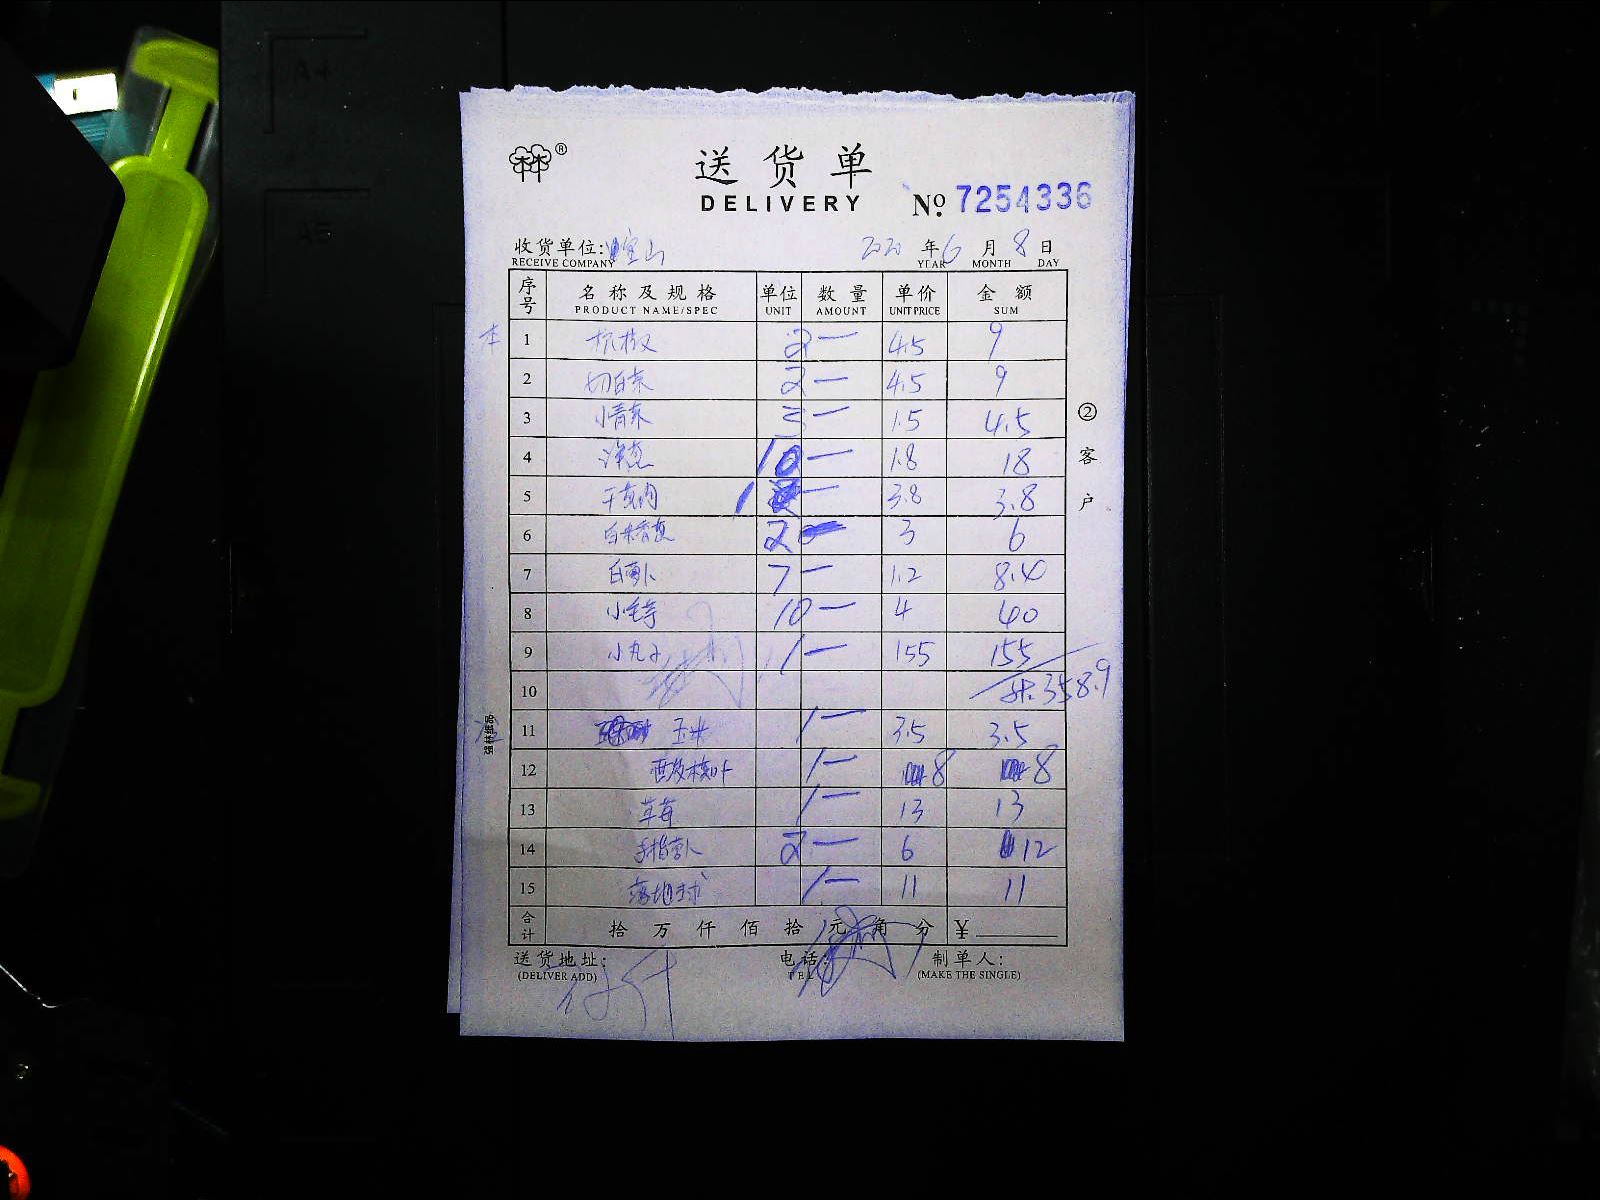 送货单
DELIVERY
№ 7254336
收货单位: 宝山 2020 年 6 月 8 日
RECEIVE COMPANY YEAR MONTH DAY
序号 名称及规格 单位 数量 单价 金额
PRODUCT NAME/SPEC UNIT AMOUNT UNIT PRICE SUM
本 1 杭椒 2一 4.5 9
2 切白菜 2一 4.5 9
3 小青菜 3一 1.5 4.5
4 洋葱 10一 1.8 18
5 1一 3.8 3.8
6 2 3 6
7 白萝卜 7一 1.2 8.40
8 小毛芋 10一 4 40
9 小丸子 1一 155 155
10 358.9
11 玉米 1一 3.5 3.5
12 1一 8 8
13 草莓 1一 13 13
14 手指萝卜 2一 6 12
15 1一 11 11
合计 拾 万 仟 佰 拾 元 角 分 ¥
送货地址: 电话: 制单人:
(DELIVER ADD) TEL (MAKE THE SINGLE)
② 客户